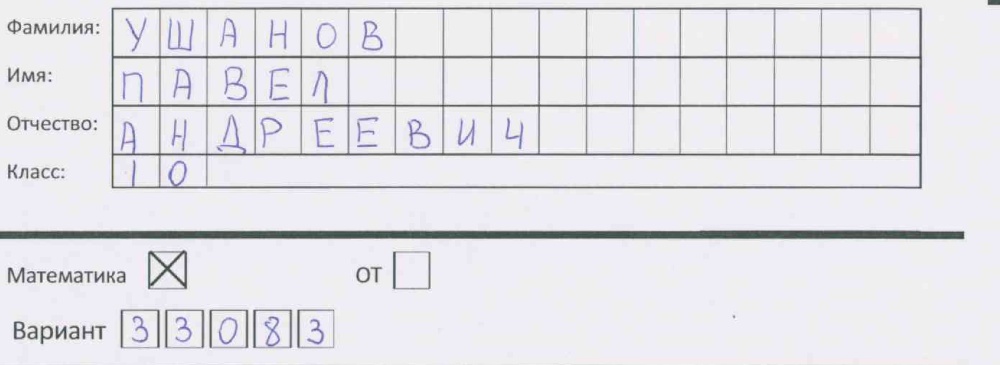 Фамилия: УШАНОВ
Имя: ПАВЕЛ
Отчество: АНДРЕЕВИЧ
Класс: 10
Математика ОТ
Вариант 33083